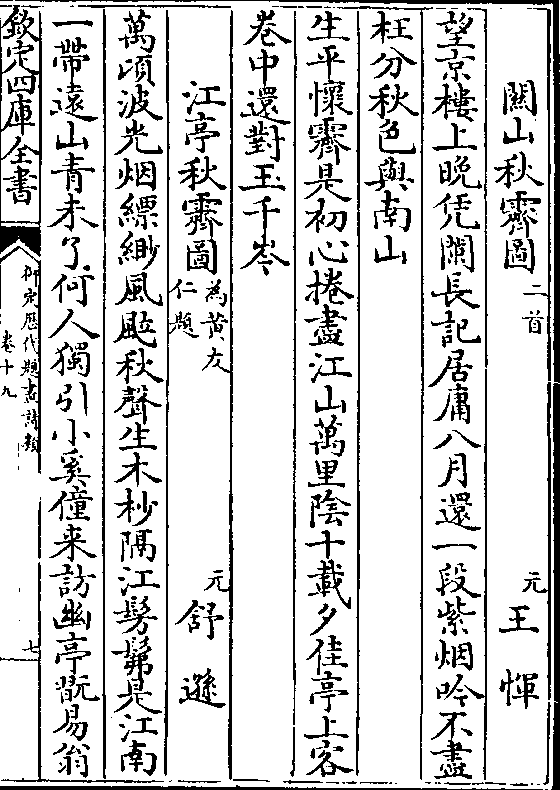 關山秋霽圖二首 元王惲
望京樓上晚凭闌長記居庸八月還一段紫烟吟不盡
枉分秋色與南山
生平懷霽是初心捲盡江山萬里陰十載夕佳亭上客
卷中還對玉千岑
江亭秋霽圖為黄友仁題 元舒遜
萬頃波光烟縹緲風颭秋聲生木杪隔江髣髴是江南
一帶逺山青未了何人獨引小奚僮来訪幽亭翫易翁
欽定四庫全書
御定歴代題畫詩類
卷十九
七